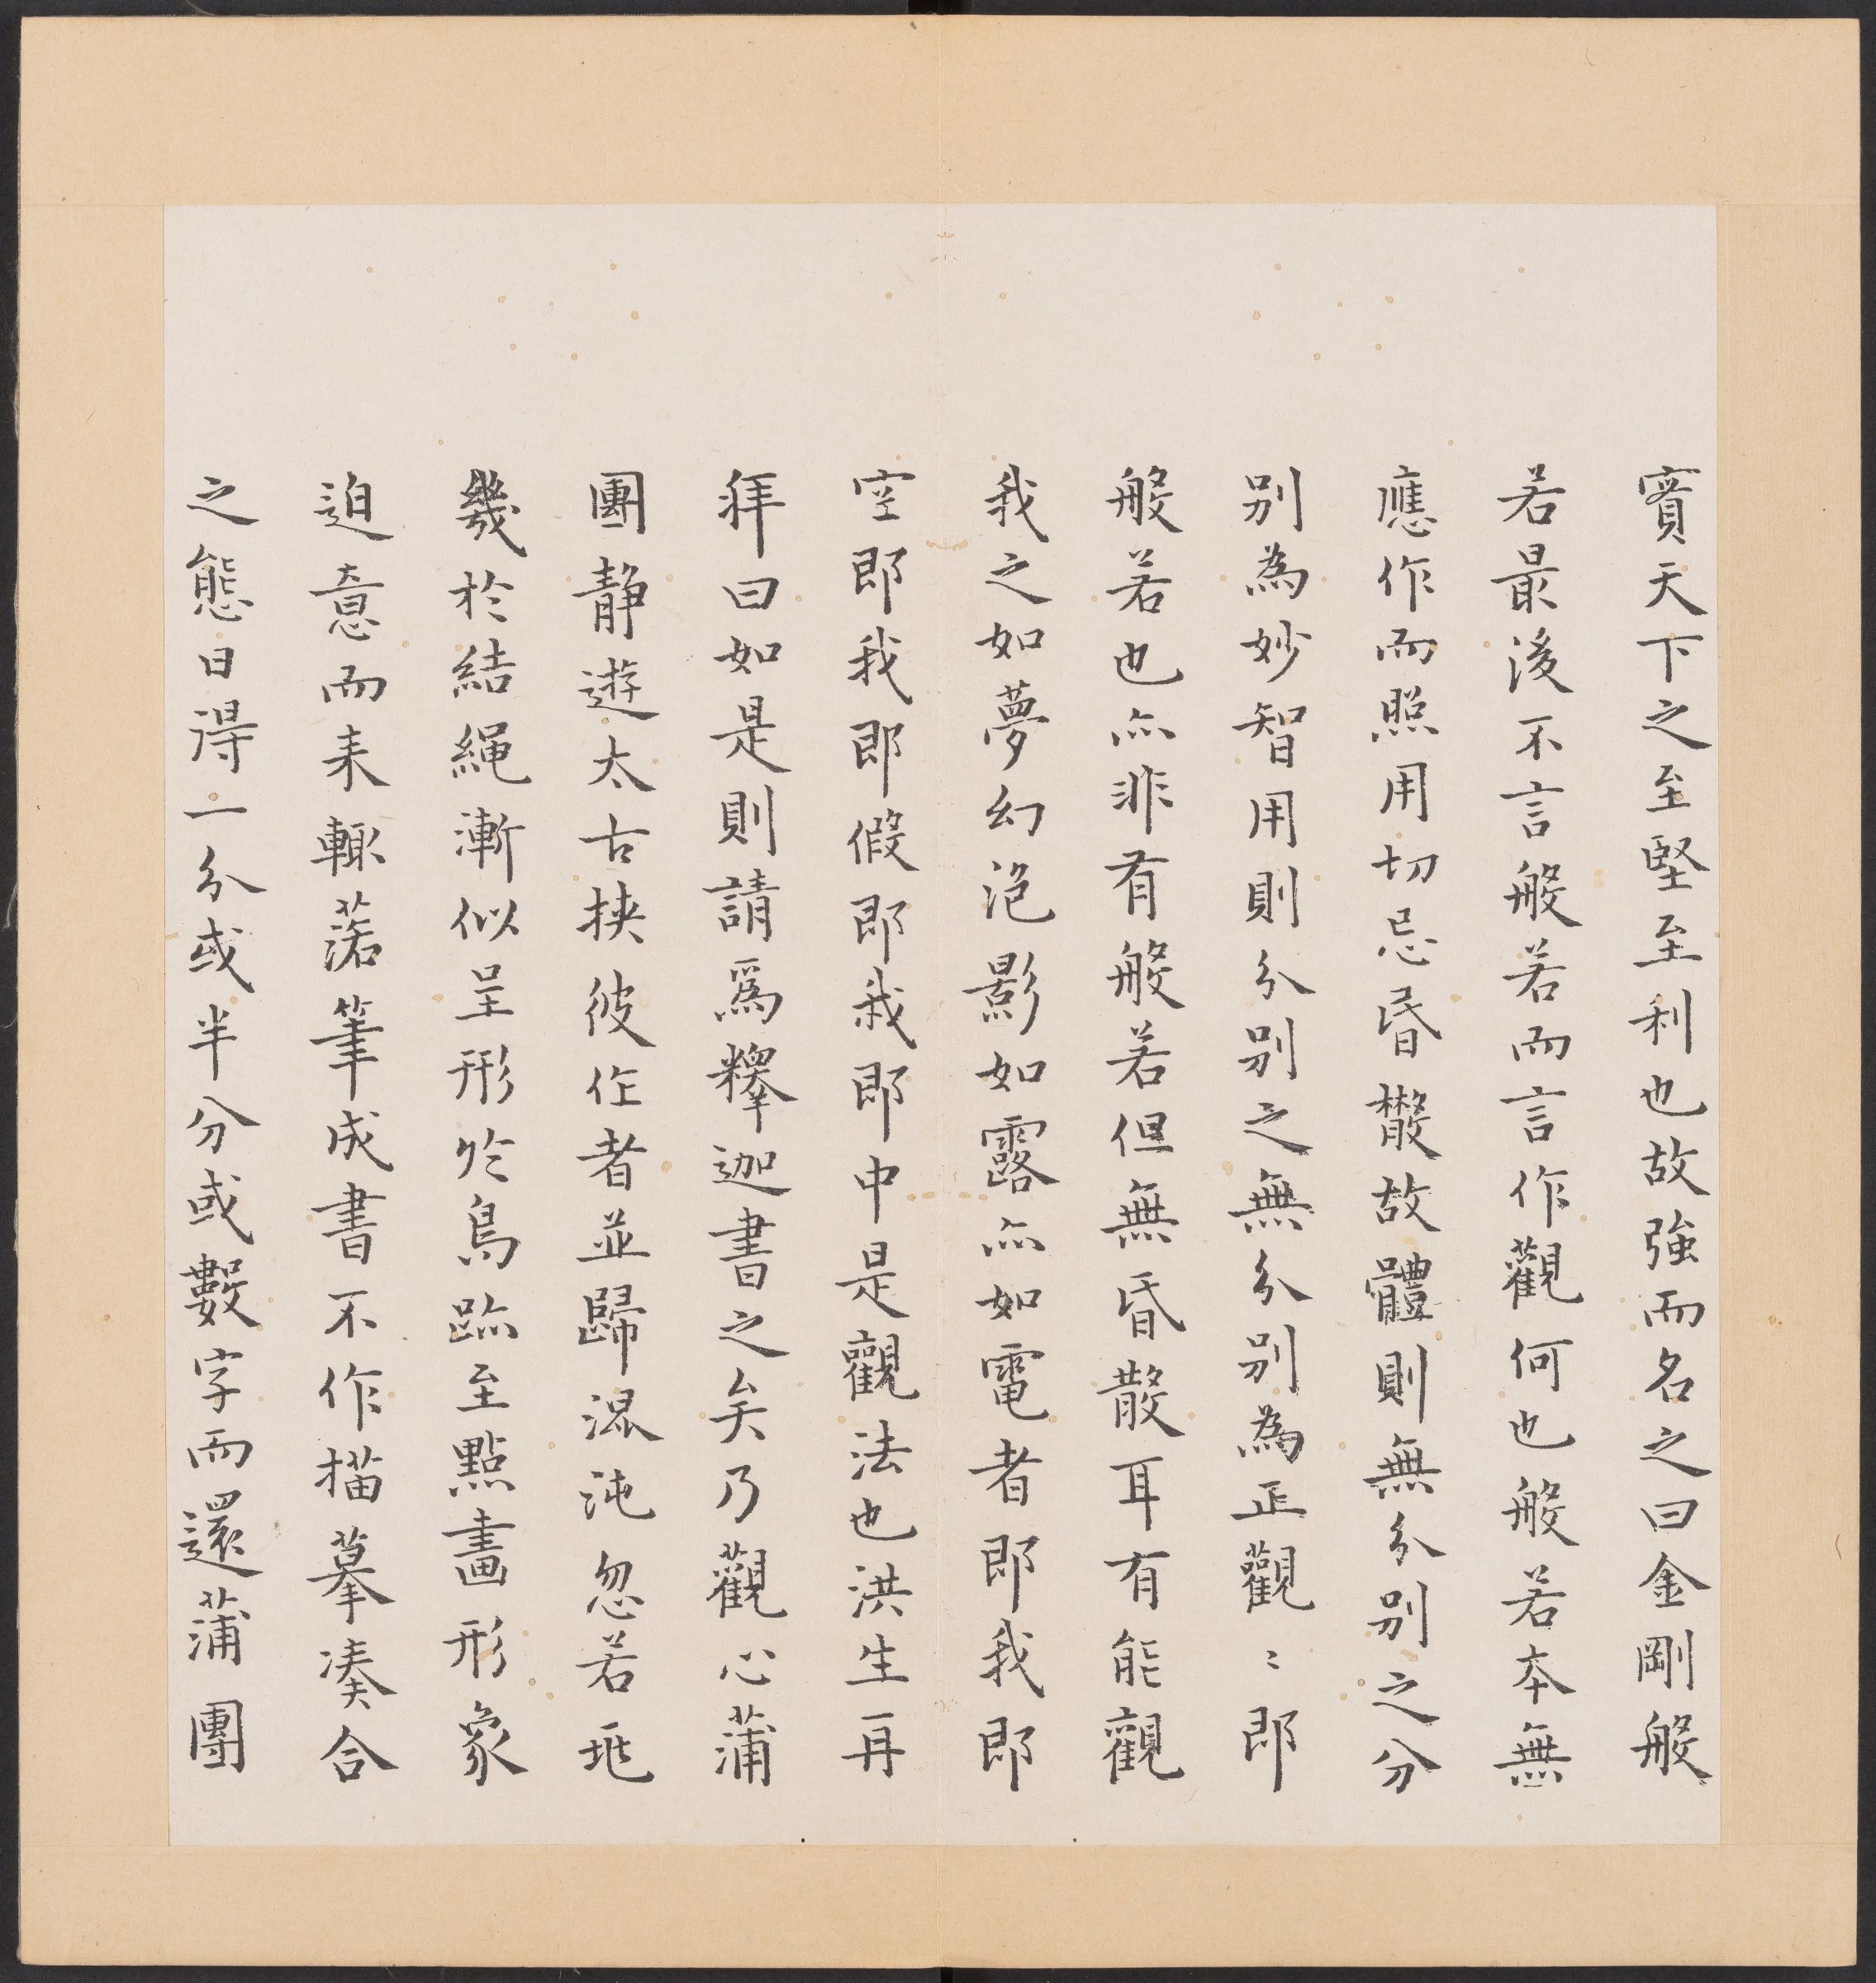 實天下之至堅至利也故強而名之曰金剛般
若最後不言般若而言作觀何也般若本無
應作而照用切忌昏散故體則無分別之分
別為妙智用則分別之無分別為正觀〻即
般若也亦非有般若但無昏散耳有能觀
我之如夢幻泡影如露亦如電者即我即
空即我即假即我即中是觀法也洪生再
拜曰如是則請為釋迦書之矣乃觀心蒲
團靜遊太古挾彼作者並歸混沌忽若
幾於結繩漸似呈形於鳥跡至點畫形象
迫意而来輙落筆成書不作描摹湊合
之態日得一分或半分或數字而還蒲團